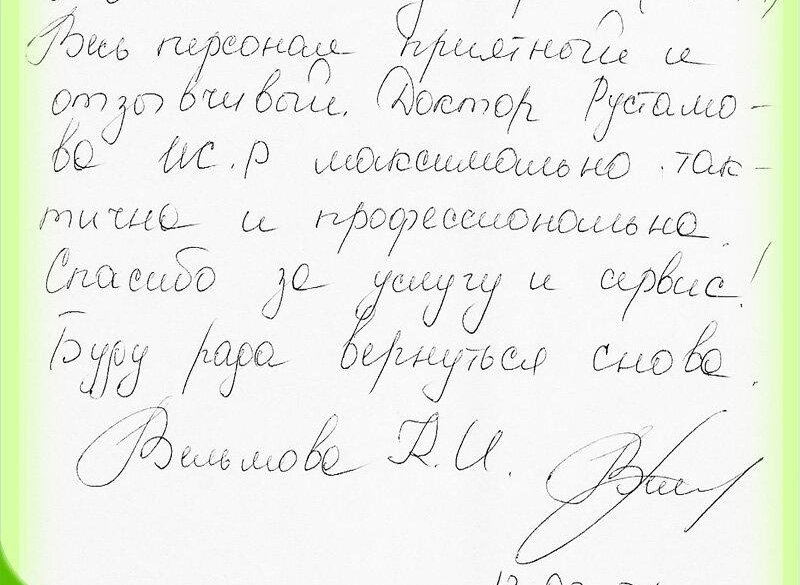 Весь персонал приятный и
отзывчивый. Доктор Рустамо-
ва И.С.Р максимально так-
тична и профессиональна.
Спасибо за услугу и сервис!
Буду рада вернуться снова.
Вельмова К.И.